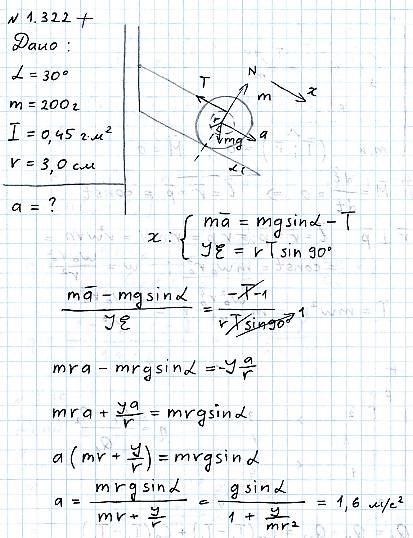 № 1.322 +
Дано :
α = 30°
m = 200 г
I = 0,45 г·м²
r = 3,0 см
a = ?
N
T
m
x
r
mg
a
α
x : { ma̅ = mg sinα − T
Iξ = rT sin 90°
(ma̅ − mg sinα)/(Iξ) = (−T·1)/(rT sin90°) 1
mra − mrg sinα = −I a/r
mra + Ia/r = mrg sinα
a (mr + I/r) = mrg sinα
a = (mrg sinα)/(mr + I/r) = (g sinα)/(1 + I/mr²) = 1,6 м/с²